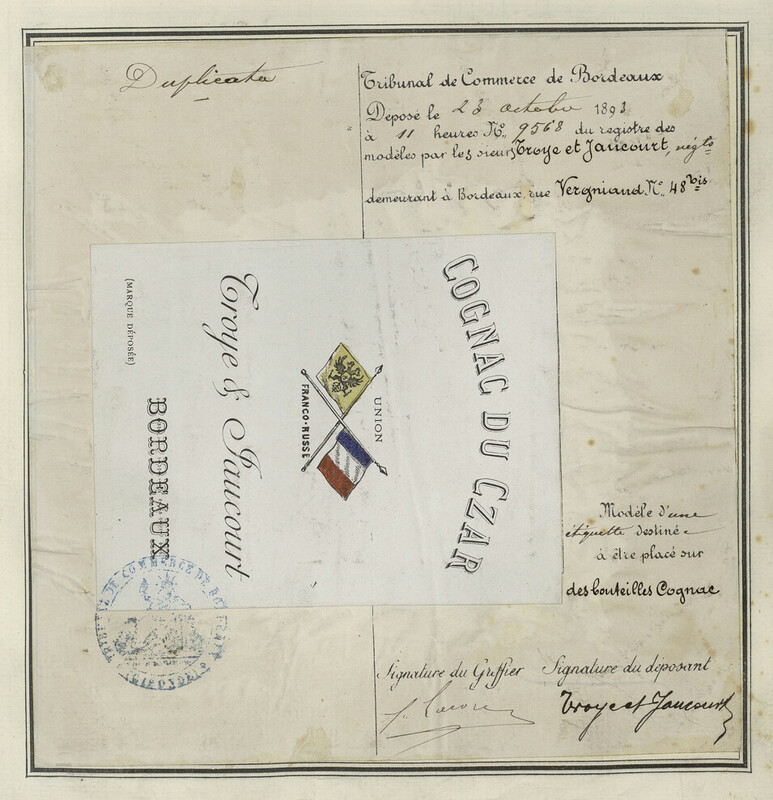 Duplicata
Tribunal de Commerce de Bordeaux
Déposé le 23 octobre 1893
à 11 heures No. 9568 du registre des
modèles par les sieurs Troye et Jaucourt, négts
demeurant à Bordeaux, rue Vergniaud No. 48 bis
COGNAC DU CZAR
UNION
FRANCO-RUSSE
Troye & Jaucourt
BORDEAUX
(MARQUE DÉPOSÉE)
Modèle d'une
étiquette destinée
à être placé sur
des bouteilles Cognac
TRIBUNAL DE COMMERCE DE BORDEAUX
GIRONDE
Signature du Greffier Signature du déposant
Troye et Jaucourt